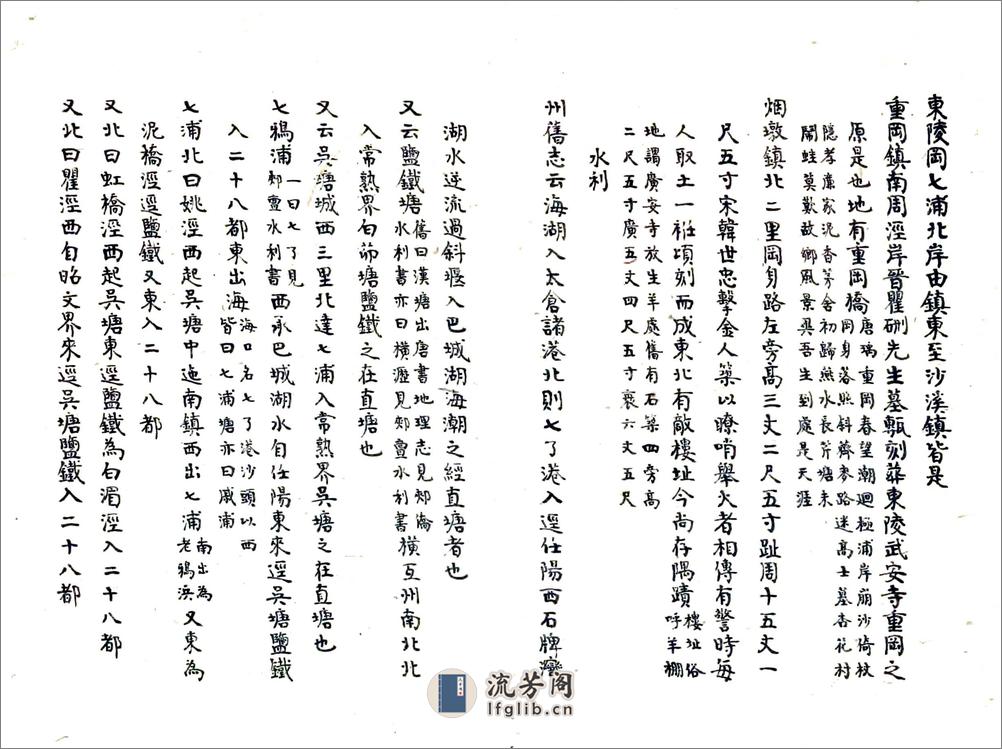 東陵岡七浦北岸由鎮東至沙溪鎮皆是
重岡鎮南周涇岸晉瞿硎先生墓甎刻葬東陵武安寺重岡之
原是也地有重岡橋唐瑀重岡春望潮迴極浦岸崩沙倚杖
岡身落照斜薺麥路迷高士墓杏花村
隱孝廉家泥香芳舍初歸燕水長芹塘未
鬧蛙莫歎故鄉風景異吾生到處是天涯
烟墩鎮北二里岡身路左旁高三丈二尺五寸趾周十五丈一
尺五寸宋韓世忠擊金人築以瞭哨舉火者相傳有警時每
人取土一裋頃刻而成東北有敵樓址今尚存隅蹟樓址俗
呼羊棚
地謂廣安寺放生羊處舊有石築四旁高
二尺五寸廣五丈四尺五寸袤六丈五尺
水利
州舊志云海湖入太倉諸港北則七了港入逕任陽西石牌灣
湖水逆流過斜堰入巴城湖海潮之經直塘者也
又云鹽鐵塘舊曰漢塘出唐書地理志見郟僑
水利書亦曰橫瀝見郟亶水利書橫互州南北北
入常熟界白茆塘鹽鐵之在直塘也
又云吳塘城西三里北達七浦入常熟界吳塘之在直塘也
七鴉浦一曰七了見
郟亶水利書西承巴城湖水自任陽東來逕吳塘鹽鐵
入二十八都東出海海口名七了港沙頭以西
皆曰七浦塘亦曰戚浦
七浦北曰姚涇西起吳塘中迤南鎮西出七浦南出為
老鴉浜又東為
泥橋涇逕鹽鐵又東入二十八都
又北曰虹橋涇西起吳塘東逕鹽鐵為白湄涇入二十八都
又北曰瞿涇西自昭文界來逕吳塘鹽鐵入二十八都
流芳阁
lfglib.cn